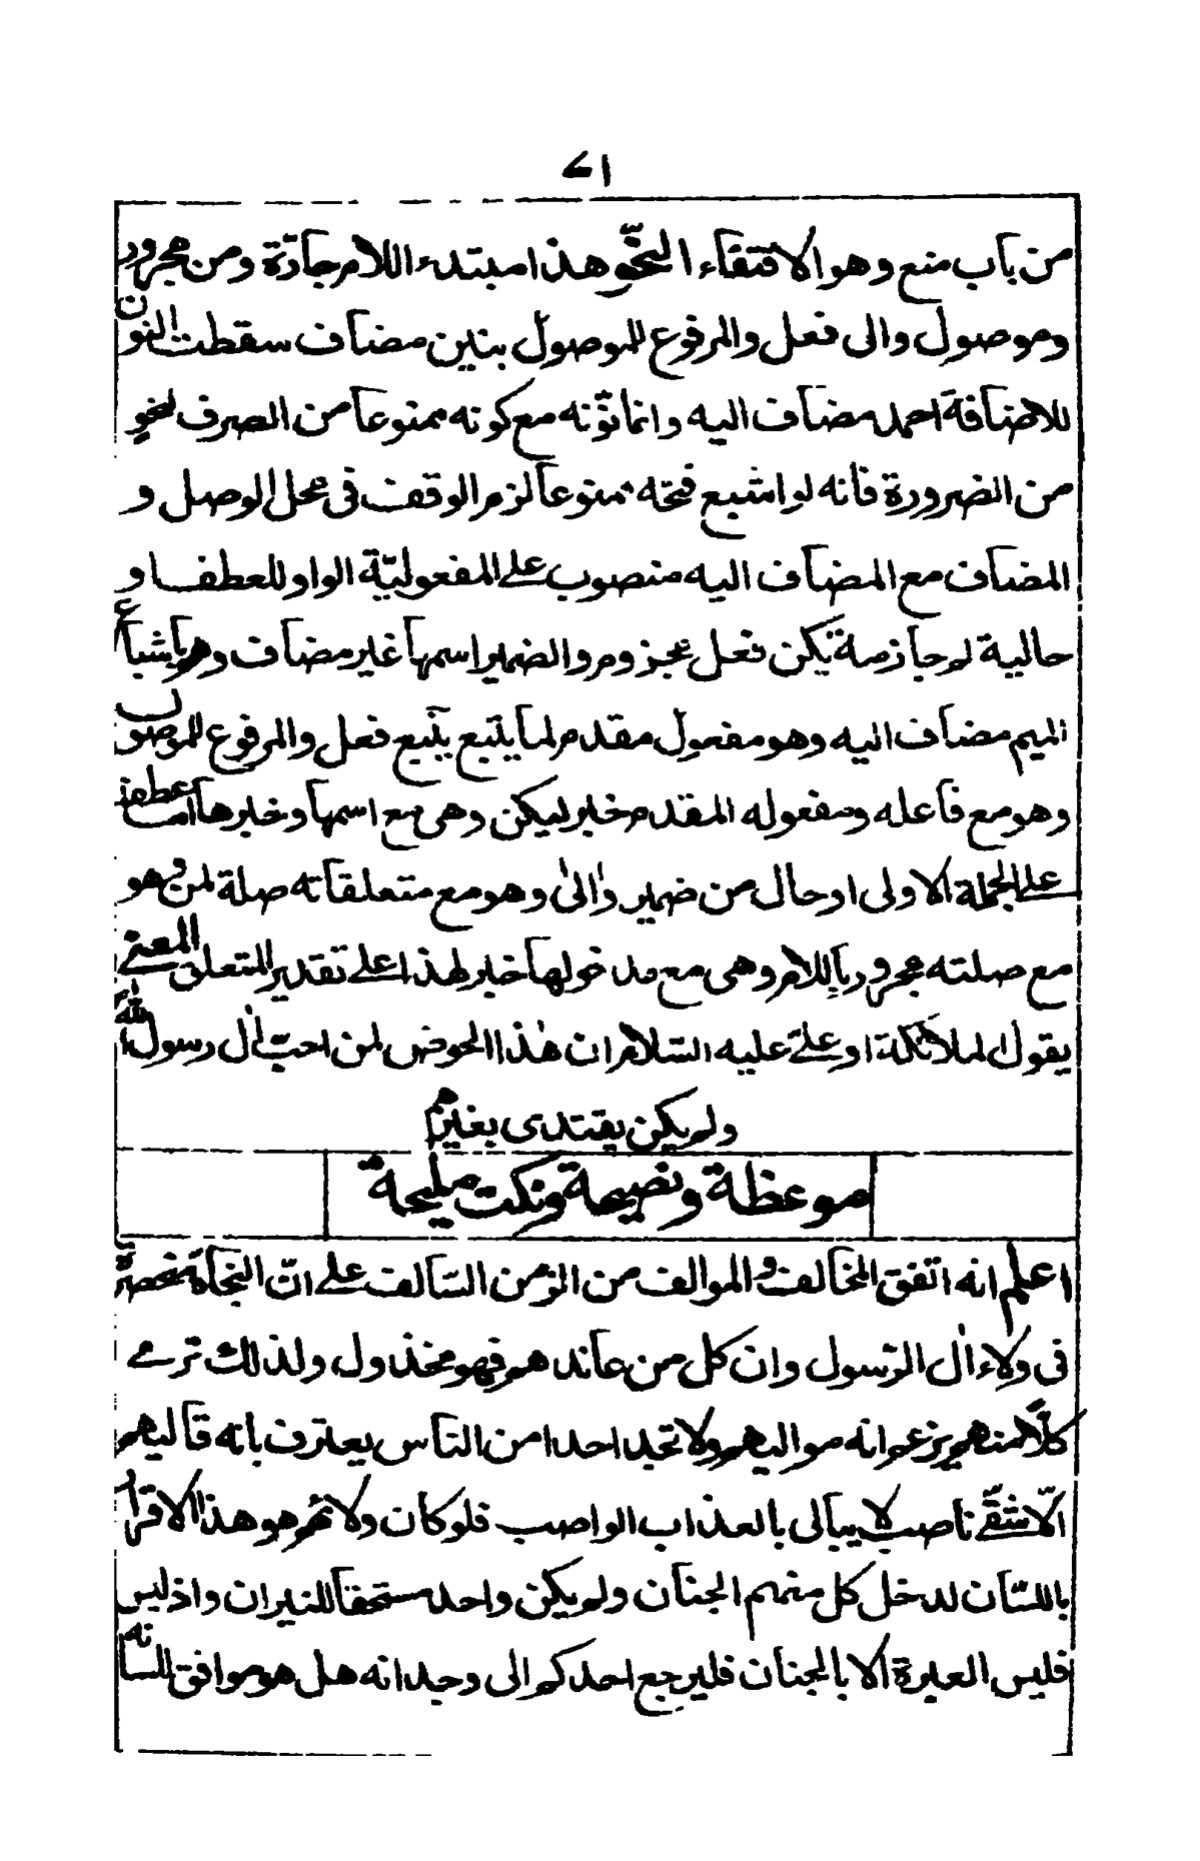 ٧١
من باب منع وهو الاقتفاء النحو هذا مبتدء اللام جارّة ومن مجرور
وموصول والى فعل والمرفوع للموصول بنين مضاف سقطت النون
للاضافة احمد مضاف اليه وانما نوّنه مع كونه ممنوعا من الصرف لنحو
من الضرورة فانه لو اشبع فتحه ممنوعا لزم الوقف فى محل الوصل و
المضاف مع المضاف اليه منصوب على المفعوليّة الواو للعطف او
حالية لم جازمة يكن فعل مجزوم والضمير اسمها غير مضاف وهم باشباع
الميم مضاف اليه وهو مفعول مقدم لما يتبع يتبع فعل والمرفوع للموصول
وهو مع فاعله ومفعوله المقدم خبر ليكن وهى مع اسمها وخبرها اما عطف
على الجملة الاولى او حال من ضمير والى وهو مع متعلقاته صلة لمن وهو
مع صلته مجرور باللام وهى مع مدخولها خبر لهذا على تقدير المتعلق المعنى
يقول الملائكة او علىّ عليه السّلام ان هذا الحوض لمن احبّ ال رسول الله
ولم يكن يقتدى بغيرهم
موعظة ونصيحة ونكت مليحة
اعلم انه اتفق المخالف والموالف من الزمن السّالف على انّ النجاة منحصرة
فى ولاء ال الرّسول وان كل من عاندهم فهو مخذول ولذلك ترى
كلّا منهم يزعم انه مواليهم ولا تجد احدا من النّاس يعترف بانه قاليهم
الّا شقّى ناصب لا يبالى بالعذاب الواصب فلو كان ولائهم هو هذا الاقرار
باللسّان لدخل كل منهم الجنان ولم يكن واحد مستحقا للنيران واذ ليس
فليس العبرة الا بالجنان فليرجع احدكم الى وجدانه هل هو موافق للسانه